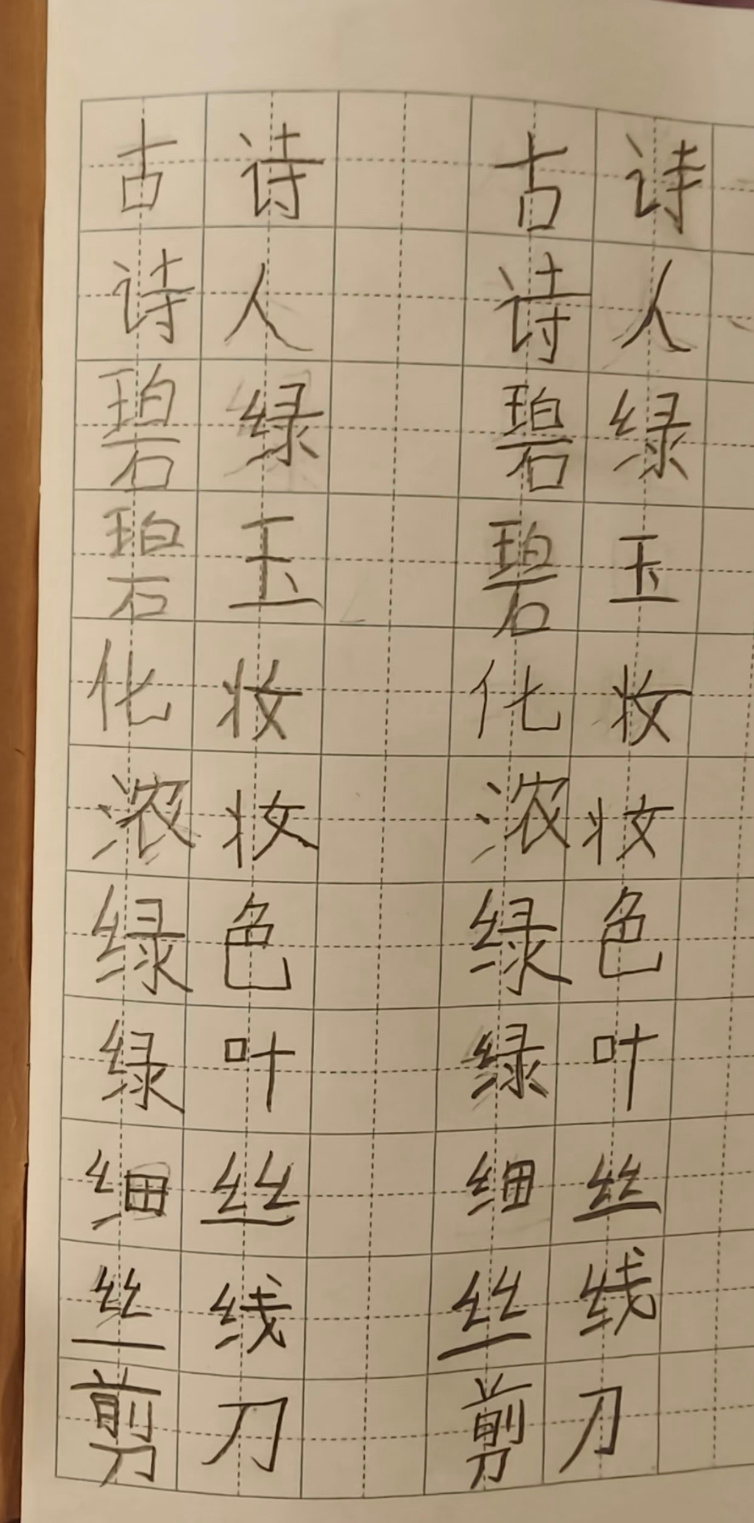 古诗 古诗
诗人 诗人
碧绿 碧绿
碧玉 碧玉
化妆 化妆
浓妆 浓妆
绿色 绿色
绿叶 绿叶
细丝 细丝
丝线 丝线
剪刀 剪刀